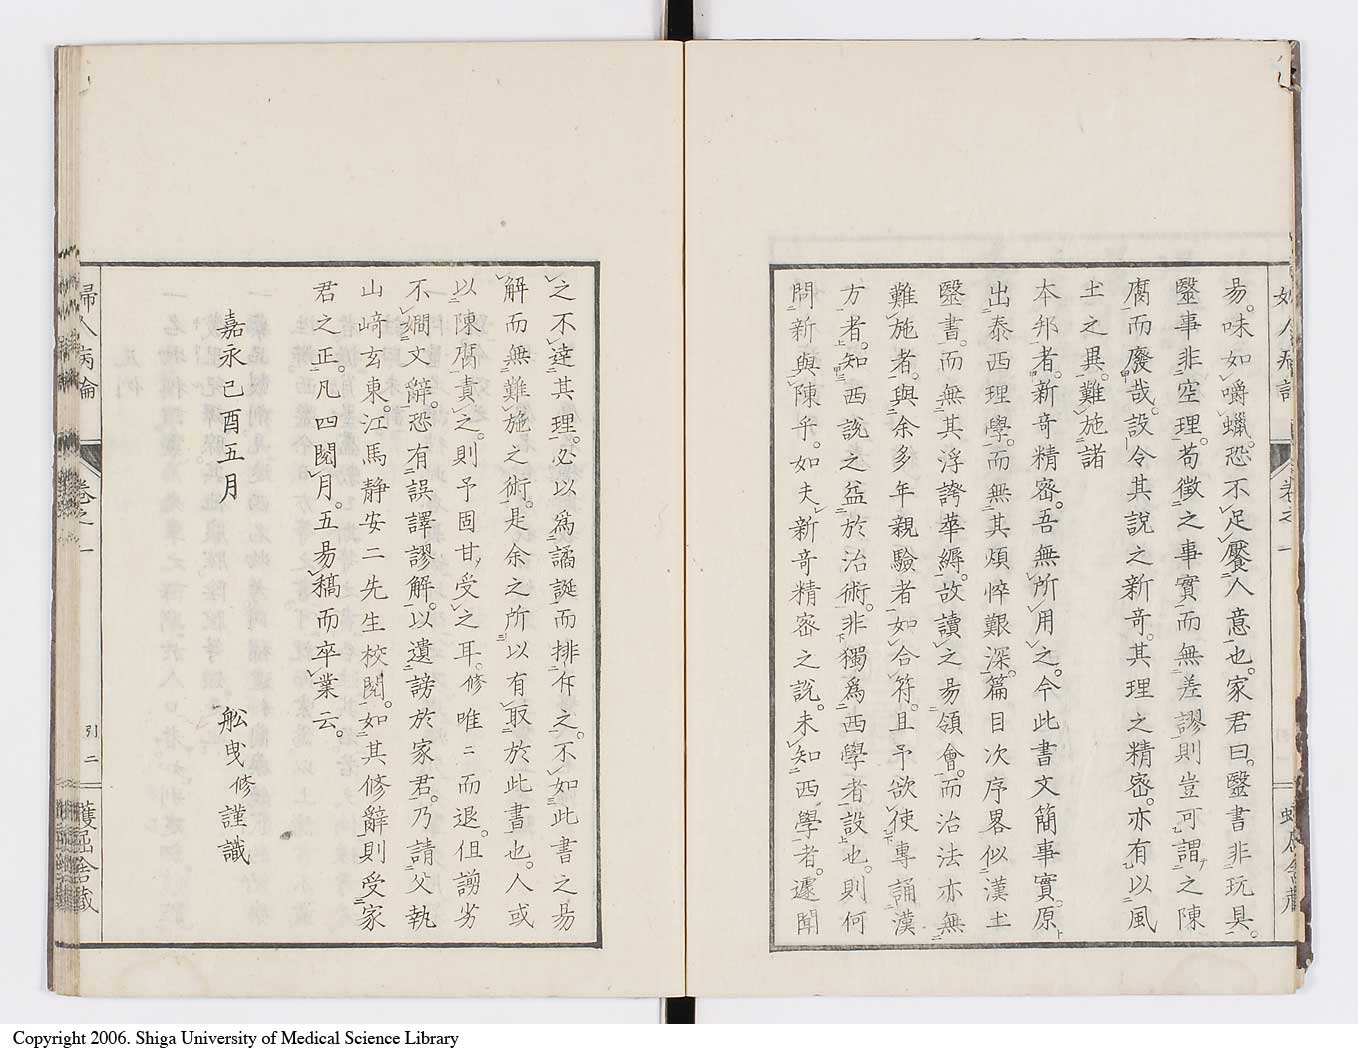 易。味如嚼蠟。恐不足饜人意也。家君曰。毉書非玩具。
毉事非空理。苟徵之事實而無差謬則豈可謂之陳
腐而廢哉。設令其說之新奇。其理之精密。亦有以風
土之異。難施諸
本邦者。新奇精密。吾無所用之。今此書文簡事實。原
出泰西理學。而無其煩悴艱深。篇目次序畧似漢土
毉書。而無其浮誇華縟。故讀之易領會。而治法亦無
難施者。與余多年親驗者如合符。且予欲使專誦漢
方者。知西說之益於治術。非獨為西學者設也。則何
問新與陳乎。如夫新奇精密之說。未知西學者。遽聞
之不達其理。必以為譎誕而排斥之。不如此書之易
解而無難施之術。是余之所以有取於此書也。人或
以陳腐責之。則予固甘受之耳。修唯二而退。但謭劣
不嫺文辭。恐有誤譯謬解。以遺謗於家君。乃請父執
山﨑玄東。江馬静安二先生校閱。如其修辭則受家
君之正。凡四閱月。五易稿而卒業云。
嘉永己酉五月
舩曳修謹識
婦人病論
卷之一
引二
蠖屈舍藏
Copyright 2006. Shiga University of Medical Science Library